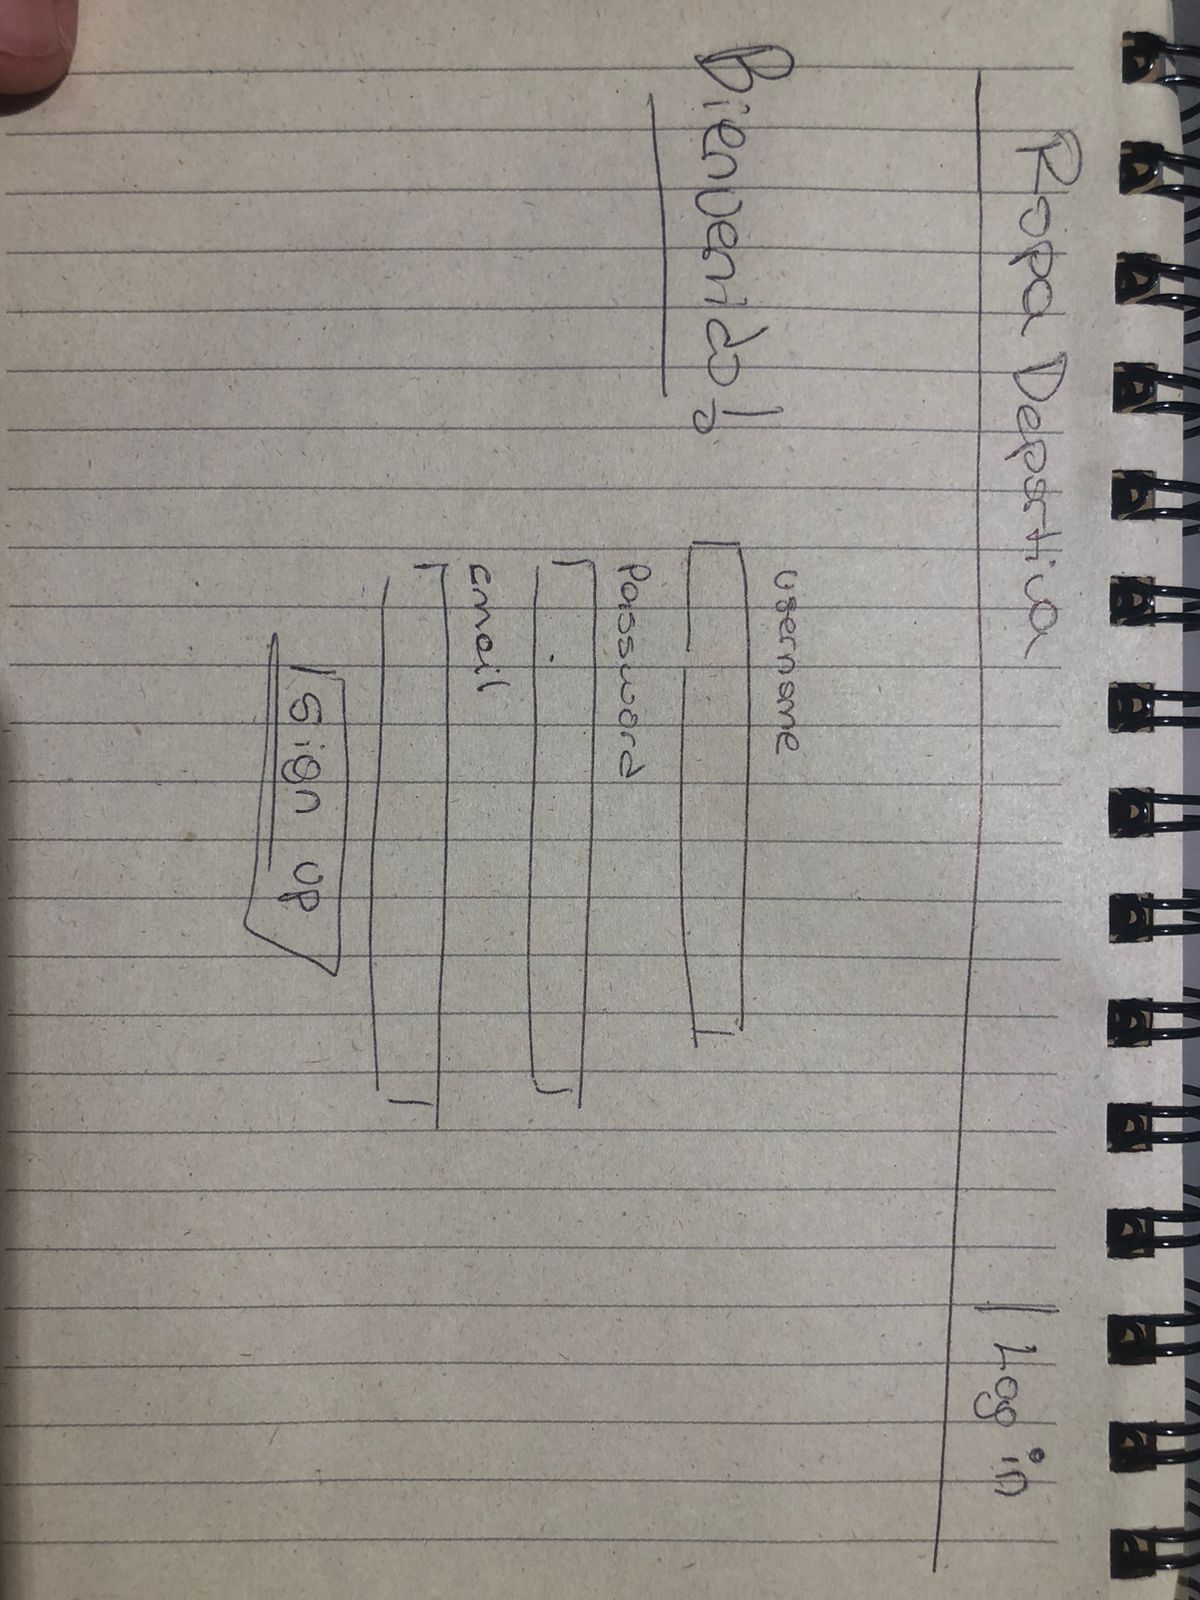 Ropa Deportiva | Log in
Bienvenido!
username
Password
email
Sign up